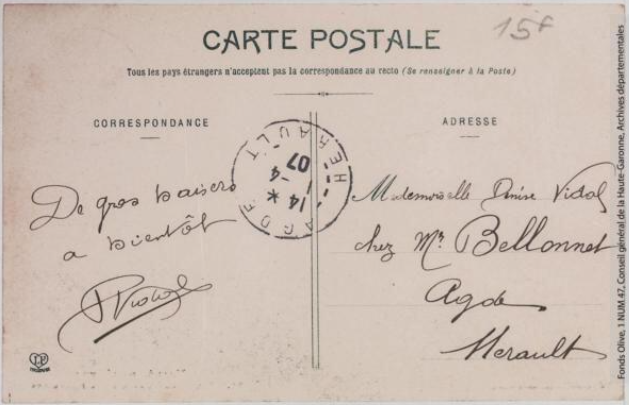 15f
CARTE POSTALE
Tous les pays étrangers n'acceptent pas la correspondance au recto (Se renseigner à la Poste)
CORRESPONDANCE
ADRESSE
De gros baisers
a bientôt
PVidal
AGDE
HERAULT
14 -4
07
Mademoiselle Denise Vidal
chez Mr Bellonnet
Agde
Herault
Fonds Olive, 1 NUM 47, Conseil général de la Haute-Garonne, Archives départementales